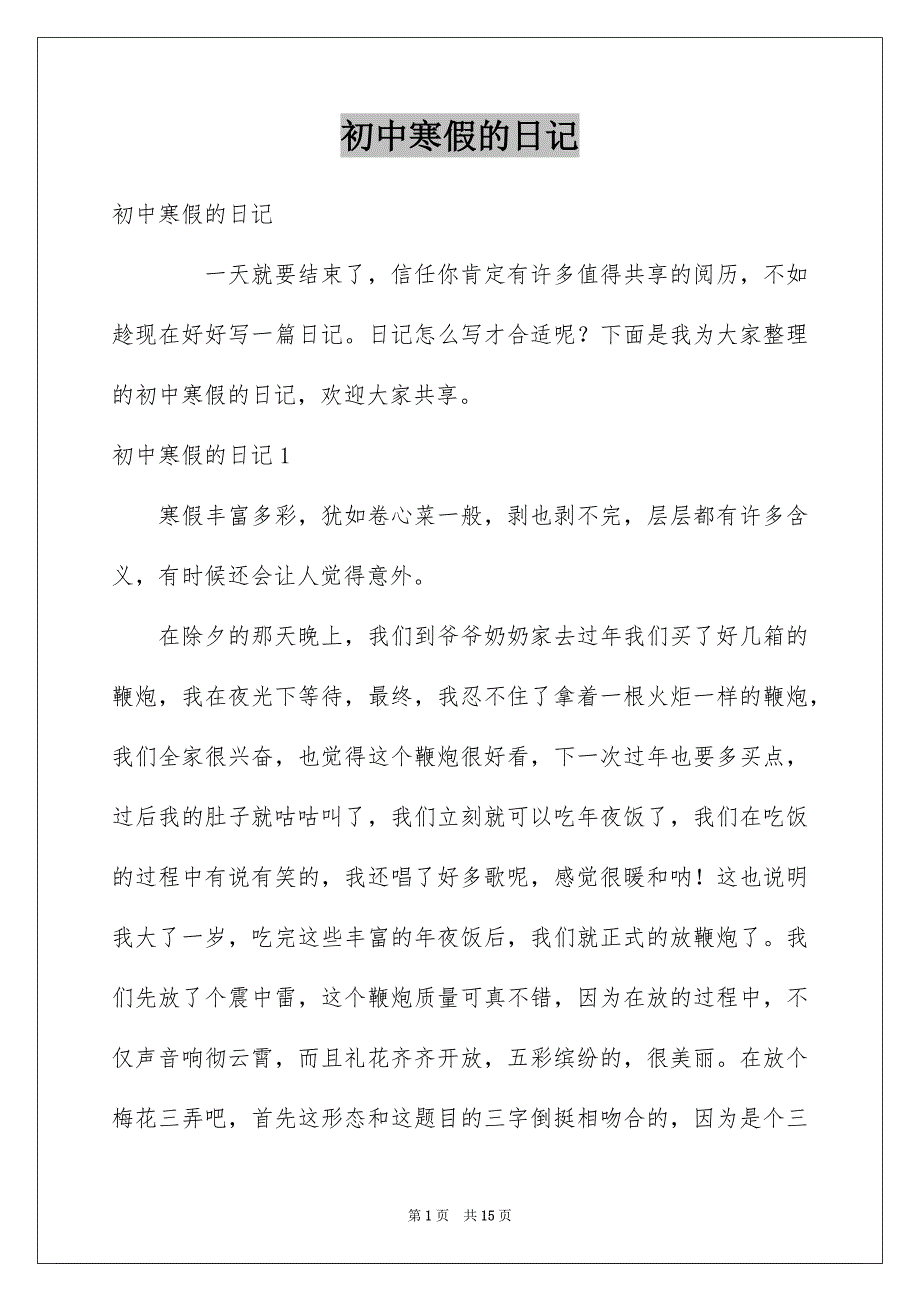 初中寒假的日记
初中寒假的日记
一天就要结束了，信任你肯定有许多值得共享的阅历，不如
趁现在好好写一篇日记。日记怎么写才合适呢？下面是我为大家整理
的初中寒假的日记，欢迎大家共享。
初中寒假的日记 1
寒假丰富多彩，犹如卷心菜一般，剥也剥不完，层层都有许多含
义，有时候还会让人觉得意外。
在除夕的那天晚上，我们到爷爷奶奶家去过年我们买了好几箱的
鞭炮，我在夜光下等待，最终，我忍不住了拿着一根火炬一样的鞭炮，
我们全家很兴奋，也觉得这个鞭炮很好看，下一次过年也要多买点，
过后我的肚子就咕咕叫了，我们立刻就可以吃年夜饭了，我们在吃饭
的过程中有说有笑的，我还唱了好多歌呢，感觉很暖和呐！这也说明
我大了一岁，吃完这些丰富的年夜饭后，我们就正式的放鞭炮了。我
们先放了个震中雷，这个鞭炮质量可真不错，因为在放的过程中，不
仅声音响彻云霄，而且礼花齐齐开放，五彩缤纷的，很美丽。在放个
梅花三弄吧，首先这形态和这题目的三字倒挺相吻合的，因为是个三
第 1 页 共 15 页